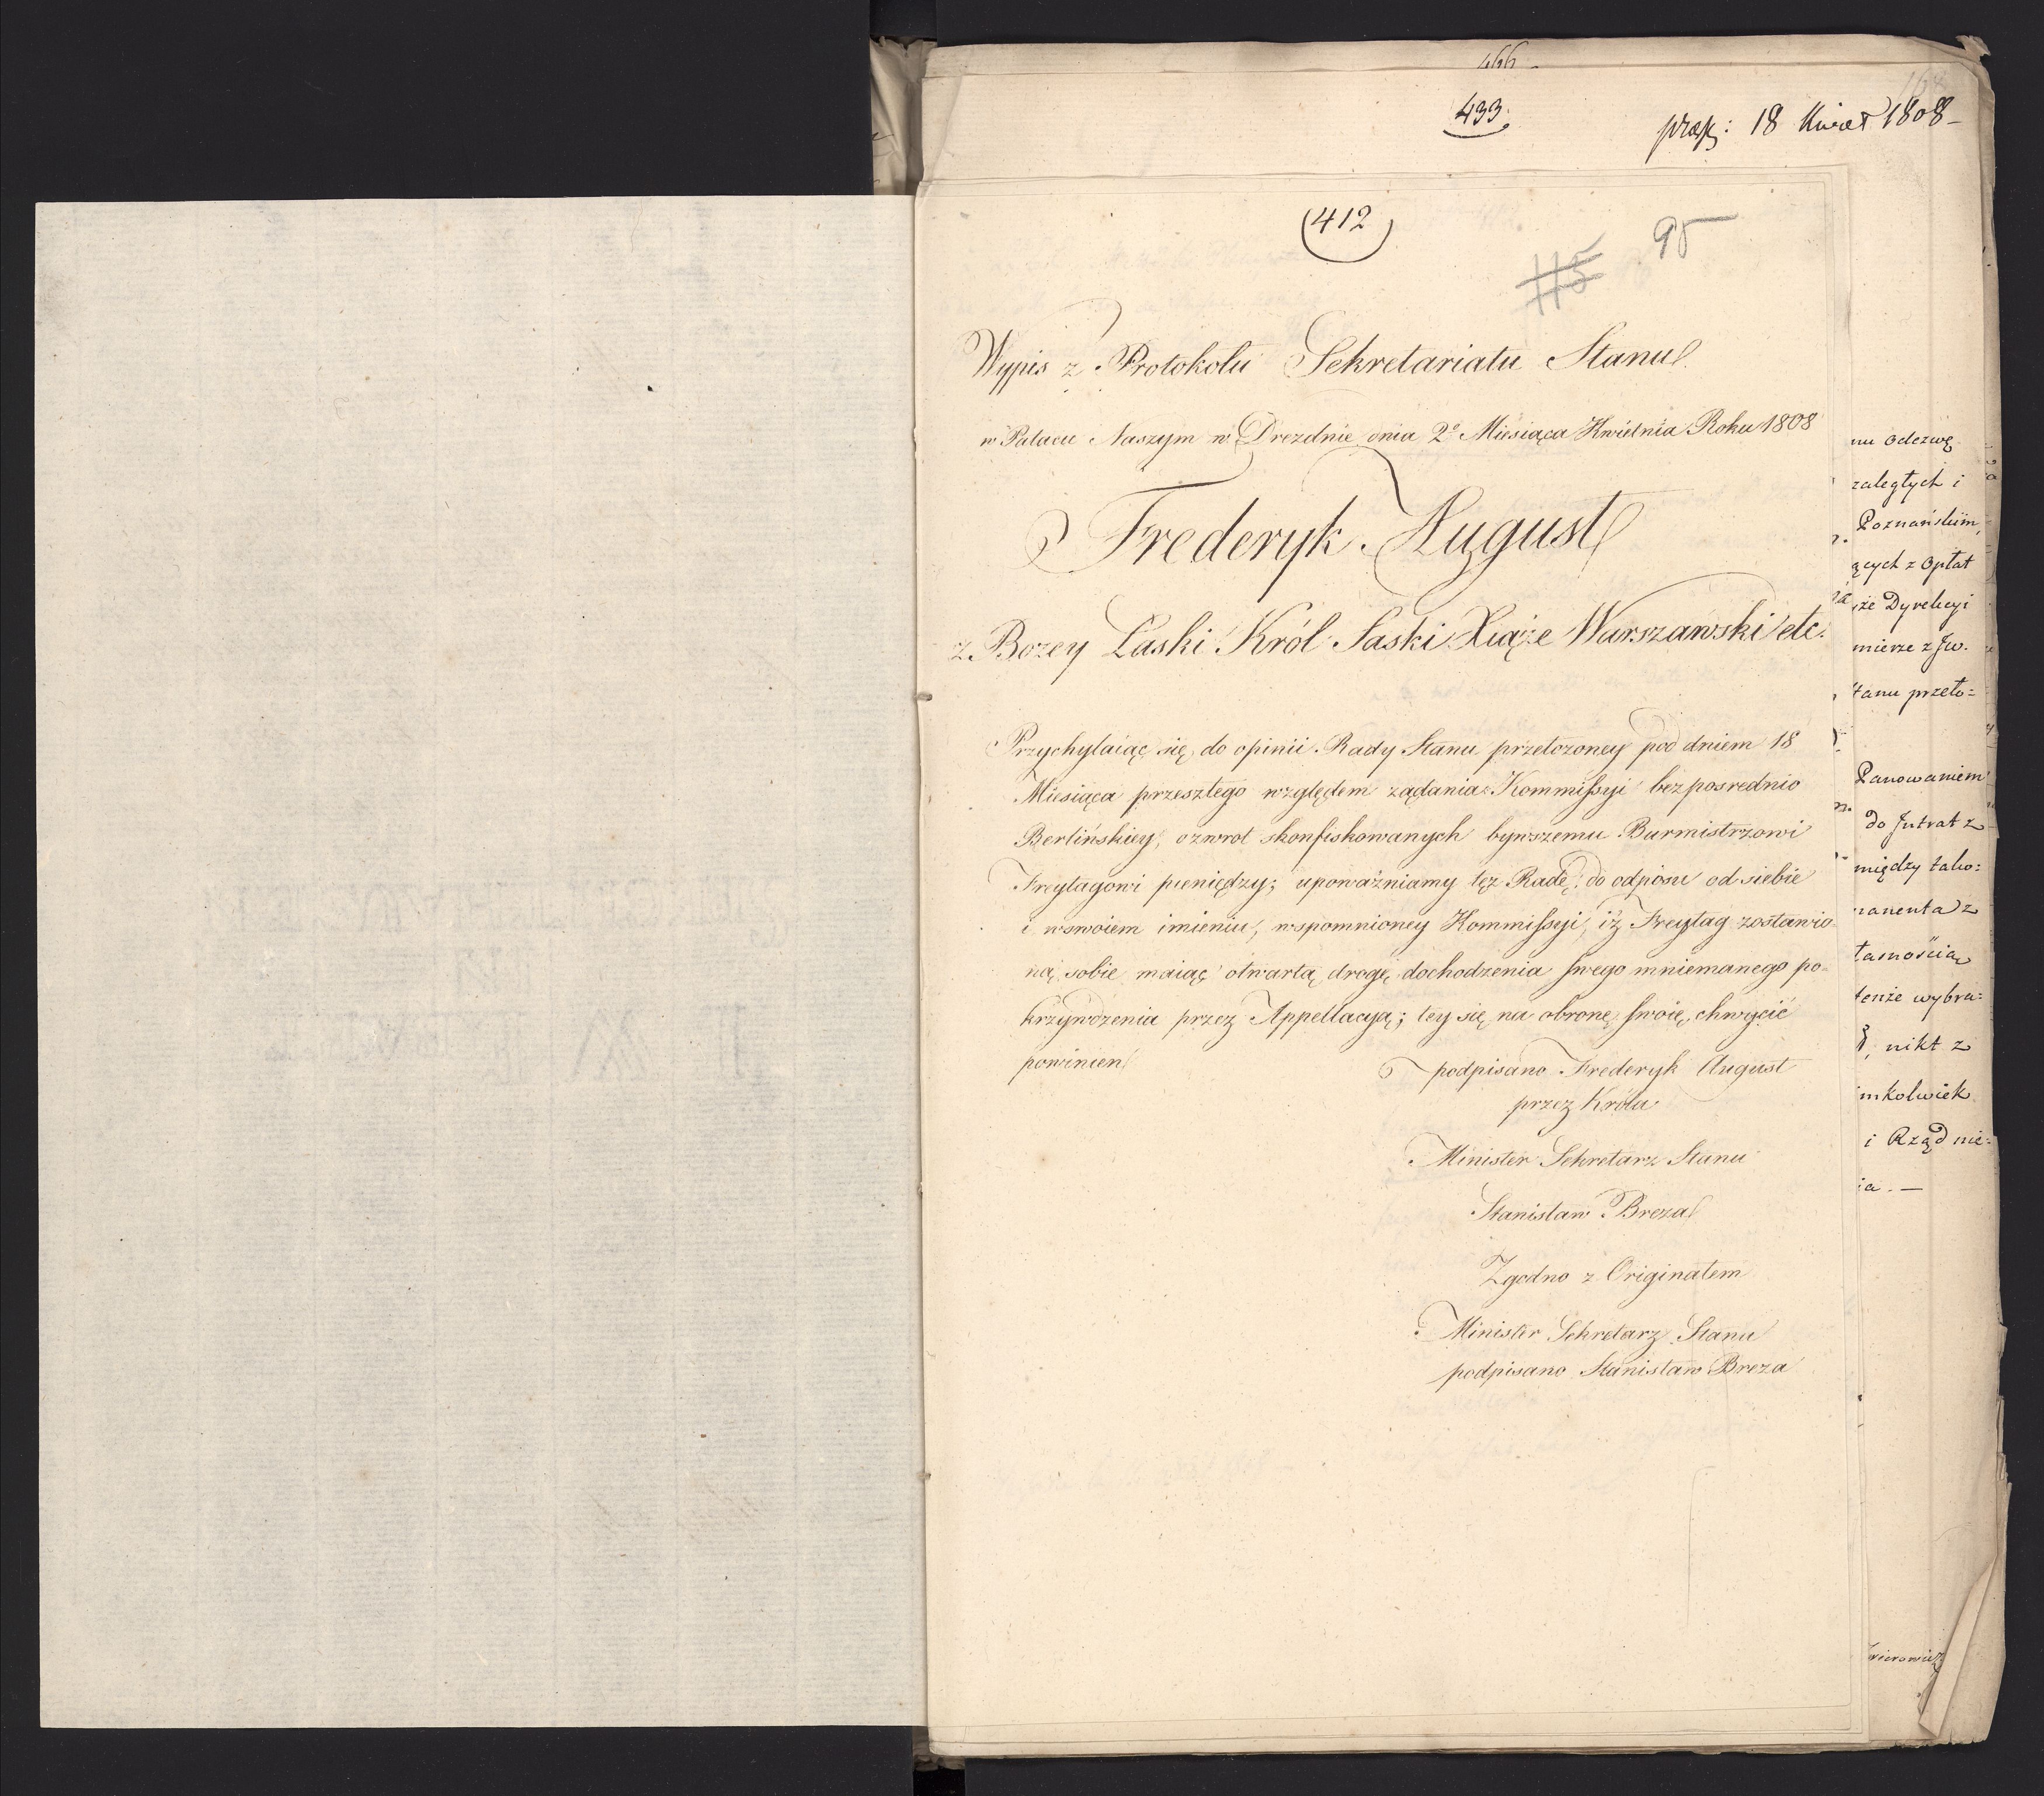 466
433.
18 Kwiet 1808
(412)
115
95
Wypis z Protokołu Sekretariatu Stanu
w Pałacu Naszym w Dreznie dnia 2º Miesiąca Kwietnia Roku 1808
Frederyk August
z Bozey Łaski Król Saski Xiąże Warszawski etc.
Przychylaiąc się do opinii Rady Stanu przełozoney pod dniem 18
Miesiąca przeszłego względem ządania Kommissyi bezposrednio
Berlińskiey, ozwrot skonfiskowanych bywszemu Burmistrzowi
Freytagowi pieniędzy; upoważniamy też Radę do odpisu od siebie
i wswoiem imieniu, wspomnioney Kommissyi, iż Freytag zostawio
ną sobie maiąc otwartą drogę dochodzenia swego mniemanego po=
krzywdzenia przez Appellacyą; tey się na obronę swoię chwycić
powinien
podpisano Frederyk August
przez Króla
Minister Sekretarz Stanu
Stanisław Breza
Zgodno z Originałem
Minister Sekretarz Stanu
podpisano Stanisław Breza
nu odezwę
zaległych i
Poznańskim,
ących z Opłat
że Dyrekcyi
mierze z Jw.
tanu przeło=
Panowaniem
do Intrat z
między tako=
nanenta z
tenże wybra=
nikt z
mkolwiek
i Rząd nie=
ia. —